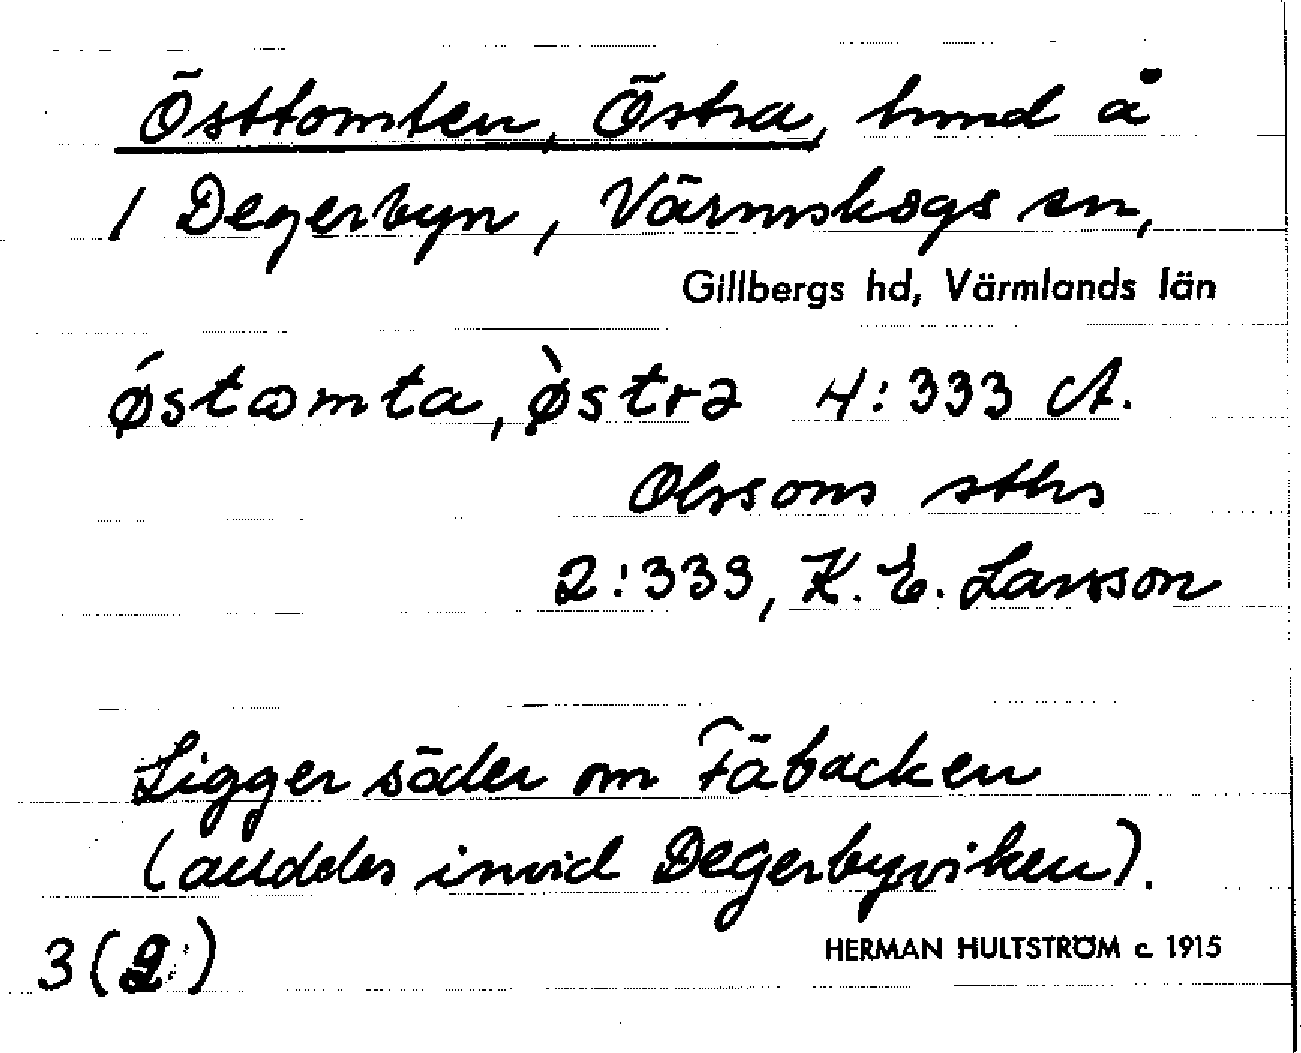 Östtomten, Östra, hmd å
1 Degerbyn, Värmskogs sn,
Gillbergs hd, Värmlands län
ǿstωmta, ø̀strə 4:333 A.
Olssons sthr
2:333, K. E. Larsson
Ligger söder om Fäbacken
(alldeles invid Degerbyviken).
3 (2)
HERMAN HULTSTRÖM c. 1915